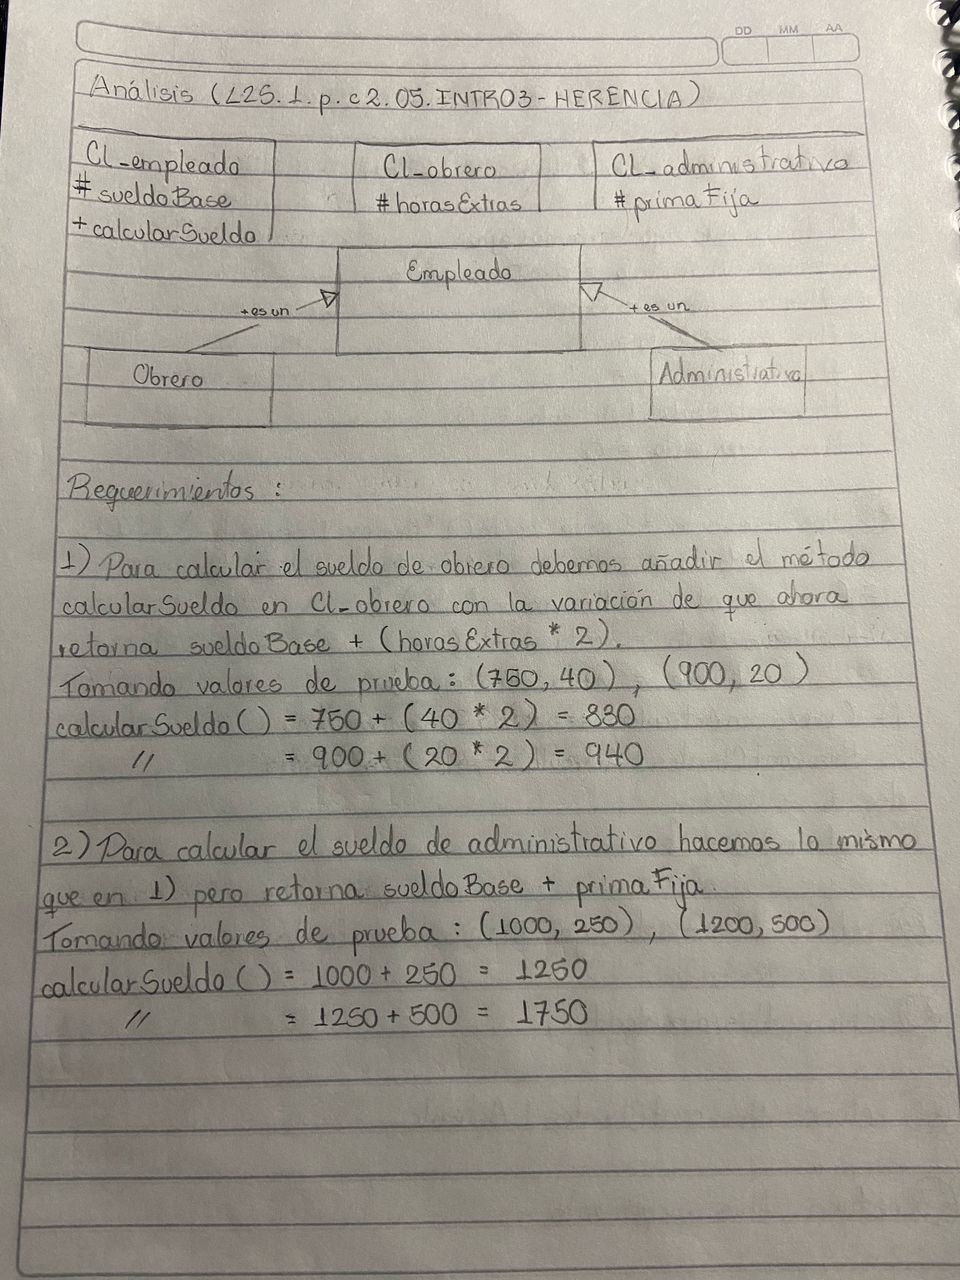 DD MM AA
Análisis (L2S.1.p.c2.05.INTRO3-HERENCIA)
Cl_empleado
# sueldoBase
+ calcularSueldo
Cl_obrero
# horasExtras
Cl_administrativo
# primaFija
Empleado
+es un
+es un
Obrero
Administrativo
Requerimientos :
1) Para calcular el sueldo de obrero debemos añadir el método
calcularSueldo en Cl_obrero con la variación de que ahora
retorna sueldoBase + (horasExtras * 2).
Tomando valores de prueba : (750, 40) , (900, 20)
calcularSueldo () = 750 + (40 * 2) = 830
// = 900 + (20 * 2) = 940
2) Para calcular el sueldo de administrativo hacemos lo mismo
que en 1) pero retorna sueldoBase + primaFija.
Tomando valores de prueba : (1000, 250) , (1200, 500)
calcularSueldo () = 1000 + 250 = 1250
// = 1250 + 500 = 1750